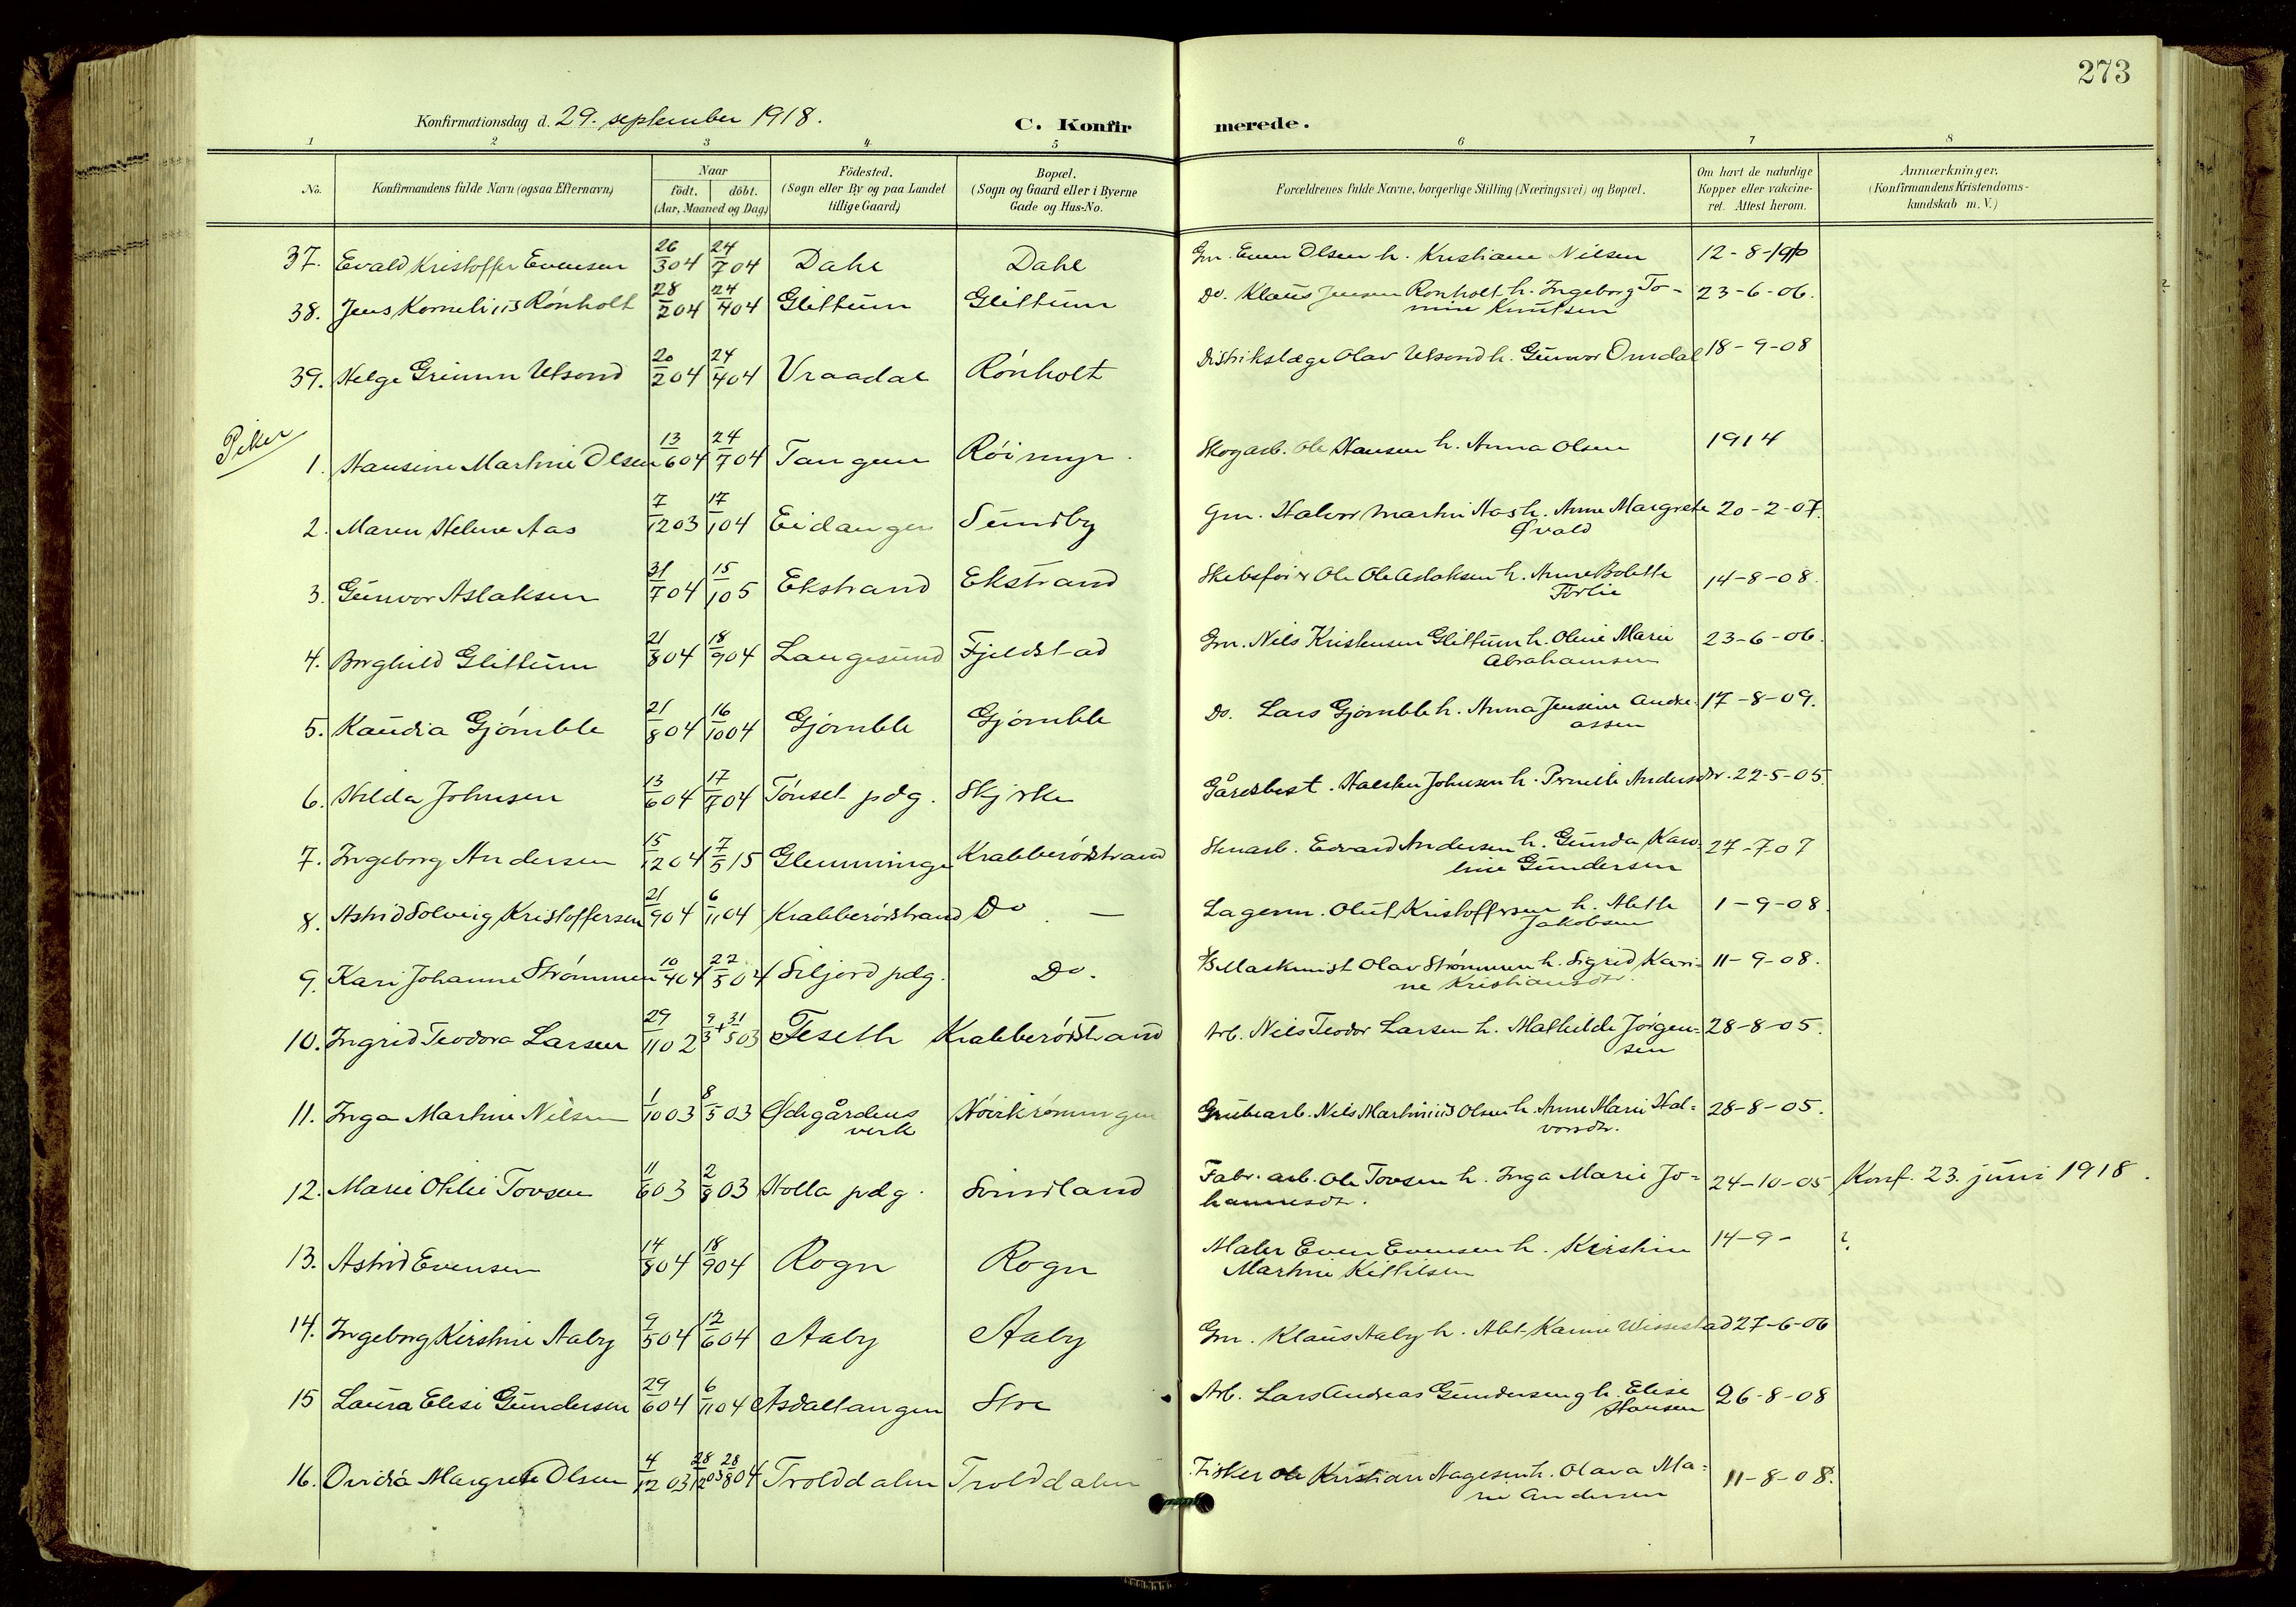 273
Konfirmationsdag d. 29. september 1918. C. Konfir merede.
1 2 3 4 5 6 7 8
No. Konfirmandens fulde Navn (ogsaa Efternavn) Naar födt. döbt. (Aar, Maaned og Dag) Födested. (Sogn eller By og paa Landet tillige Gaard) Bopæl. (Sogn og Gaard eller i Byerne Gade og Hus-No. Forældrenes fulde Navne, borgerlige Stilling (Næringsvei) og Bopæl. Om havt de naturlige Kopper eller vakcineret. Attest herom. Anmærkninger. (Konfirmandens Kristendomskundskab m. V.)
37. Evald Kristoffer Evensen 26/3 04 24/7 04 Dahl Dahl Gm. Even Olsen h. Kristiane Nilsen 12-8-1910
38. Jens Kornelius Rönholt 28/2 04 24/4 04 Glittum Glittum Do. Klaus Jensen Rönholt h. Ingeborg To-
mine Knutsen 23-6-06.
39. Helge Grimm Utsond 20/2 04 24/4 04 Vraadal Rönholt Distrikslæge Olav Utsond h. Gunvor Omdal 18-9-08
Piker
1. Hansine Martine Olsen 13/6 04 24/7 04 Tangen Röimyr. Skogarb. Ole Hansen h. Anna Olsen 1914
2. Maren Helene Aas 7/12 03 17/1 04 Eidanger Sundby Gm. Halvor Martin Aas h. Anne Margrete
Øvald 20-2-07.
3. Gunvor Aslaksen 31/7 04 15/1 05 Ekstrand Ekstrand Skibsförer Ole Ole Aslaksen h. Anne Bolette
Førlie 14-8-08.
4. Borghild Glittum 21/8 04 18/9 04 Langesund Fjeldstad Gm. Nils Kristensen Glittum h. Oline Marie
Abrahamsen 23-6-06.
5. Kaudia Gjömble 21/8 04 16/10 04 Gjömble Gjömble Do. Lars Gjömble h. Anna Jensine Andre-
assen 17-8-09.
6. Hilda Johnsen 13/6 04 17/7 04 Tönset pdg. Skjrke Gårdsbest. Halsten Johnsen h. Pernille Andersdtr. 22-5-05.
7. Ingeborg Andersen 15/12 04 7/5 15 Glemminge Krabberödstrand Stenarb. Edvard Andersen h. Gunda Karo-
line Gundersen 27-7-07
8. Astrid Solveig Kristoffersen 21/9 04 6/11 04 Krabberödstrand Do — Lagerm. Oluf Kristoffersen h. Alette
Jakobsen 1-9-08.
9. Kari Johanne Strömmen 10/4 04 22/5 04 Siljord pdg. Do. Maskinist Olav Strömmen h. Sigrid Kari-
ne Kristiansdtr. 11-9-08.
10. Ingrid Teodora Larsen 29/11 02 9/3 + 31/5 03 Feseth Krabberödstrand Arb. Nils Teodor Larsen h. Mathilde Jörgen-
sen 28-8-05.
11. Inga Martine Nilsen 1/10 03 8/5 03 Ødegårdens
verk Grubearb. Nils Martinius Olsen h. Anne Marie Hal-
vorsdtr. 28-8-05.
12. Marie Otilie Tovsen 11/6 03 2/8 03 Holla pdg. Svindland Fabr. arb. Ole Tovsen h. Inga Marie Jo-
hannesdtr. 24-10-05 Konf. 23. juni 1918.
13. Astrid Evensen 14/8 04 18/9 04 Rogn Rogn Maler Even Evensen h. Kirstine
Martine Kittilsen 14-9- ?
14. Ingeborg Kirstine Aaby 9/5 04 12/6 04 Aaby Aaby Gm. Klaus Aaby h. Alet Karine Wissestad 27-6-06
15 Laura Elise Gundersen 29/6 04 6/11 04 Asdaltangen Stre Arb. Lars Andreas Gundersen g h. Elise
Hansen 26-8-08
16. Ovidia Margrete Olsen 4/12 03 28/12 03 28/8 04 Trolddalen Trolddalen Fisker Ole Kristian Hagesen h. Olava Ma-
rie Andersen 11-8-08.